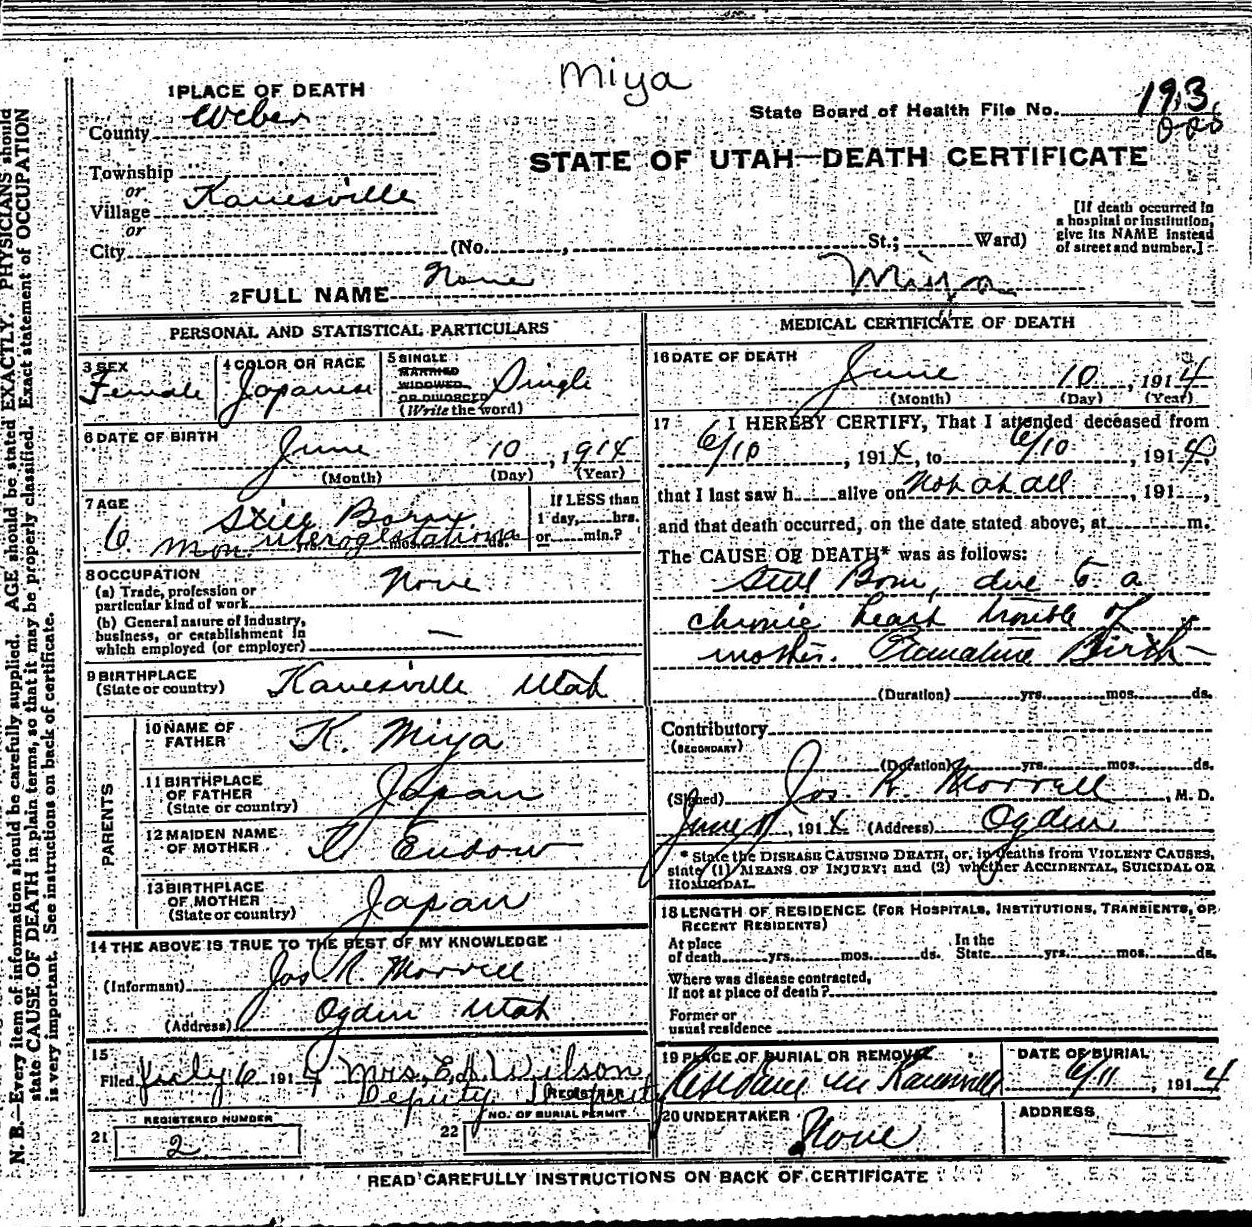 Miya
1 PLACE OF DEATH
County Weber
State Board of Health File No. 193
Township
or
Village Kanesville
or
City (No. , St.; Ward)
STATE OF UTAH—DEATH CERTIFICATE
[If death occurred in
a hospital or institution,
give its NAME instead
of street and number.]
2 FULL NAME None Miya
PERSONAL AND STATISTICAL PARTICULARS
3 SEX
Female
4 COLOR OR RACE
Japanese
5 SINGLE
MARRIED
WIDOWED
OR DIVORCED
(Write the word)
Single
6 DATE OF BIRTH
June 10, 1914
(Month) (Day) (Year)
7 AGE
Still Born
6 mon. uterogestation
yrs. mos. ds.
If LESS than
1 day, hrs.
or min.?
8 OCCUPATION
(a) Trade, profession or
particular kind of work None
(b) General nature of industry,
business, or establishment in
which employed (or employer) —
9 BIRTHPLACE
(State or country) Kanesville Utah
PARENTS
10 NAME OF
FATHER K. Miya
11 BIRTHPLACE
OF FATHER
(State or country) Japan
12 MAIDEN NAME
OF MOTHER Endow
13 BIRTHPLACE
OF MOTHER
(State or country) Japan
14 THE ABOVE IS TRUE TO THE BEST OF MY KNOWLEDGE
(Informant) Jos R. Morrell
(Address) Ogden Utah
15
Filed July 6 1914 Mrs. E. Wilson
Deputy REGISTRAR
REGISTERED NUMBER
21 2
NO. OF BURIAL PERMIT
22
MEDICAL CERTIFICATE OF DEATH
16 DATE OF DEATH
June 10, 1914
(Month) (Day) (Year)
17 I HEREBY CERTIFY, That I attended deceased from
6/10, 1914, to 6/10, 1914,
that I last saw h alive on Not at all, 191 ,
and that death occurred, on the date stated above, at m.
The CAUSE OF DEATH* was as follows:
Still Born, due to a
chronic heart trouble of
mother. Premature Birth
(Duration) yrs. mos. ds.
Contributory
(SECONDARY)
(Duration) yrs. mos. ds.
(Signed) Jos. R. Morrell, M. D.
June 11, 1914 (Address) Ogden
* State the DISEASE CAUSING DEATH, or, in deaths from VIOLENT CAUSES,
state (1) MEANS OF INJURY; and (2) whether ACCIDENTAL, SUICIDAL OR
HOMICIDAL.
18 LENGTH OF RESIDENCE (FOR HOSPITALS, INSTITUTIONS, TRANSIENTS, OR
RECENT RESIDENTS)
At place
of death yrs. mos. ds.
In the
State yrs. mos. ds.
Where was disease contracted,
if not at place of death?
Former or
usual residence
19 PLACE OF BURIAL OR REMOVAL
Residence in Kanesville
DATE OF BURIAL
6/11, 1914
20 UNDERTAKER
None
ADDRESS
—
READ CAREFULLY INSTRUCTIONS ON BACK OF CERTIFICATE
N. B.—Every item of information should be carefully supplied. AGE should be stated EXACTLY. PHYSICIANS should
state CAUSE OF DEATH in plain terms, so that it may be properly classified. Exact statement of OCCUPATION
is very important. See instructions on back of certificate.